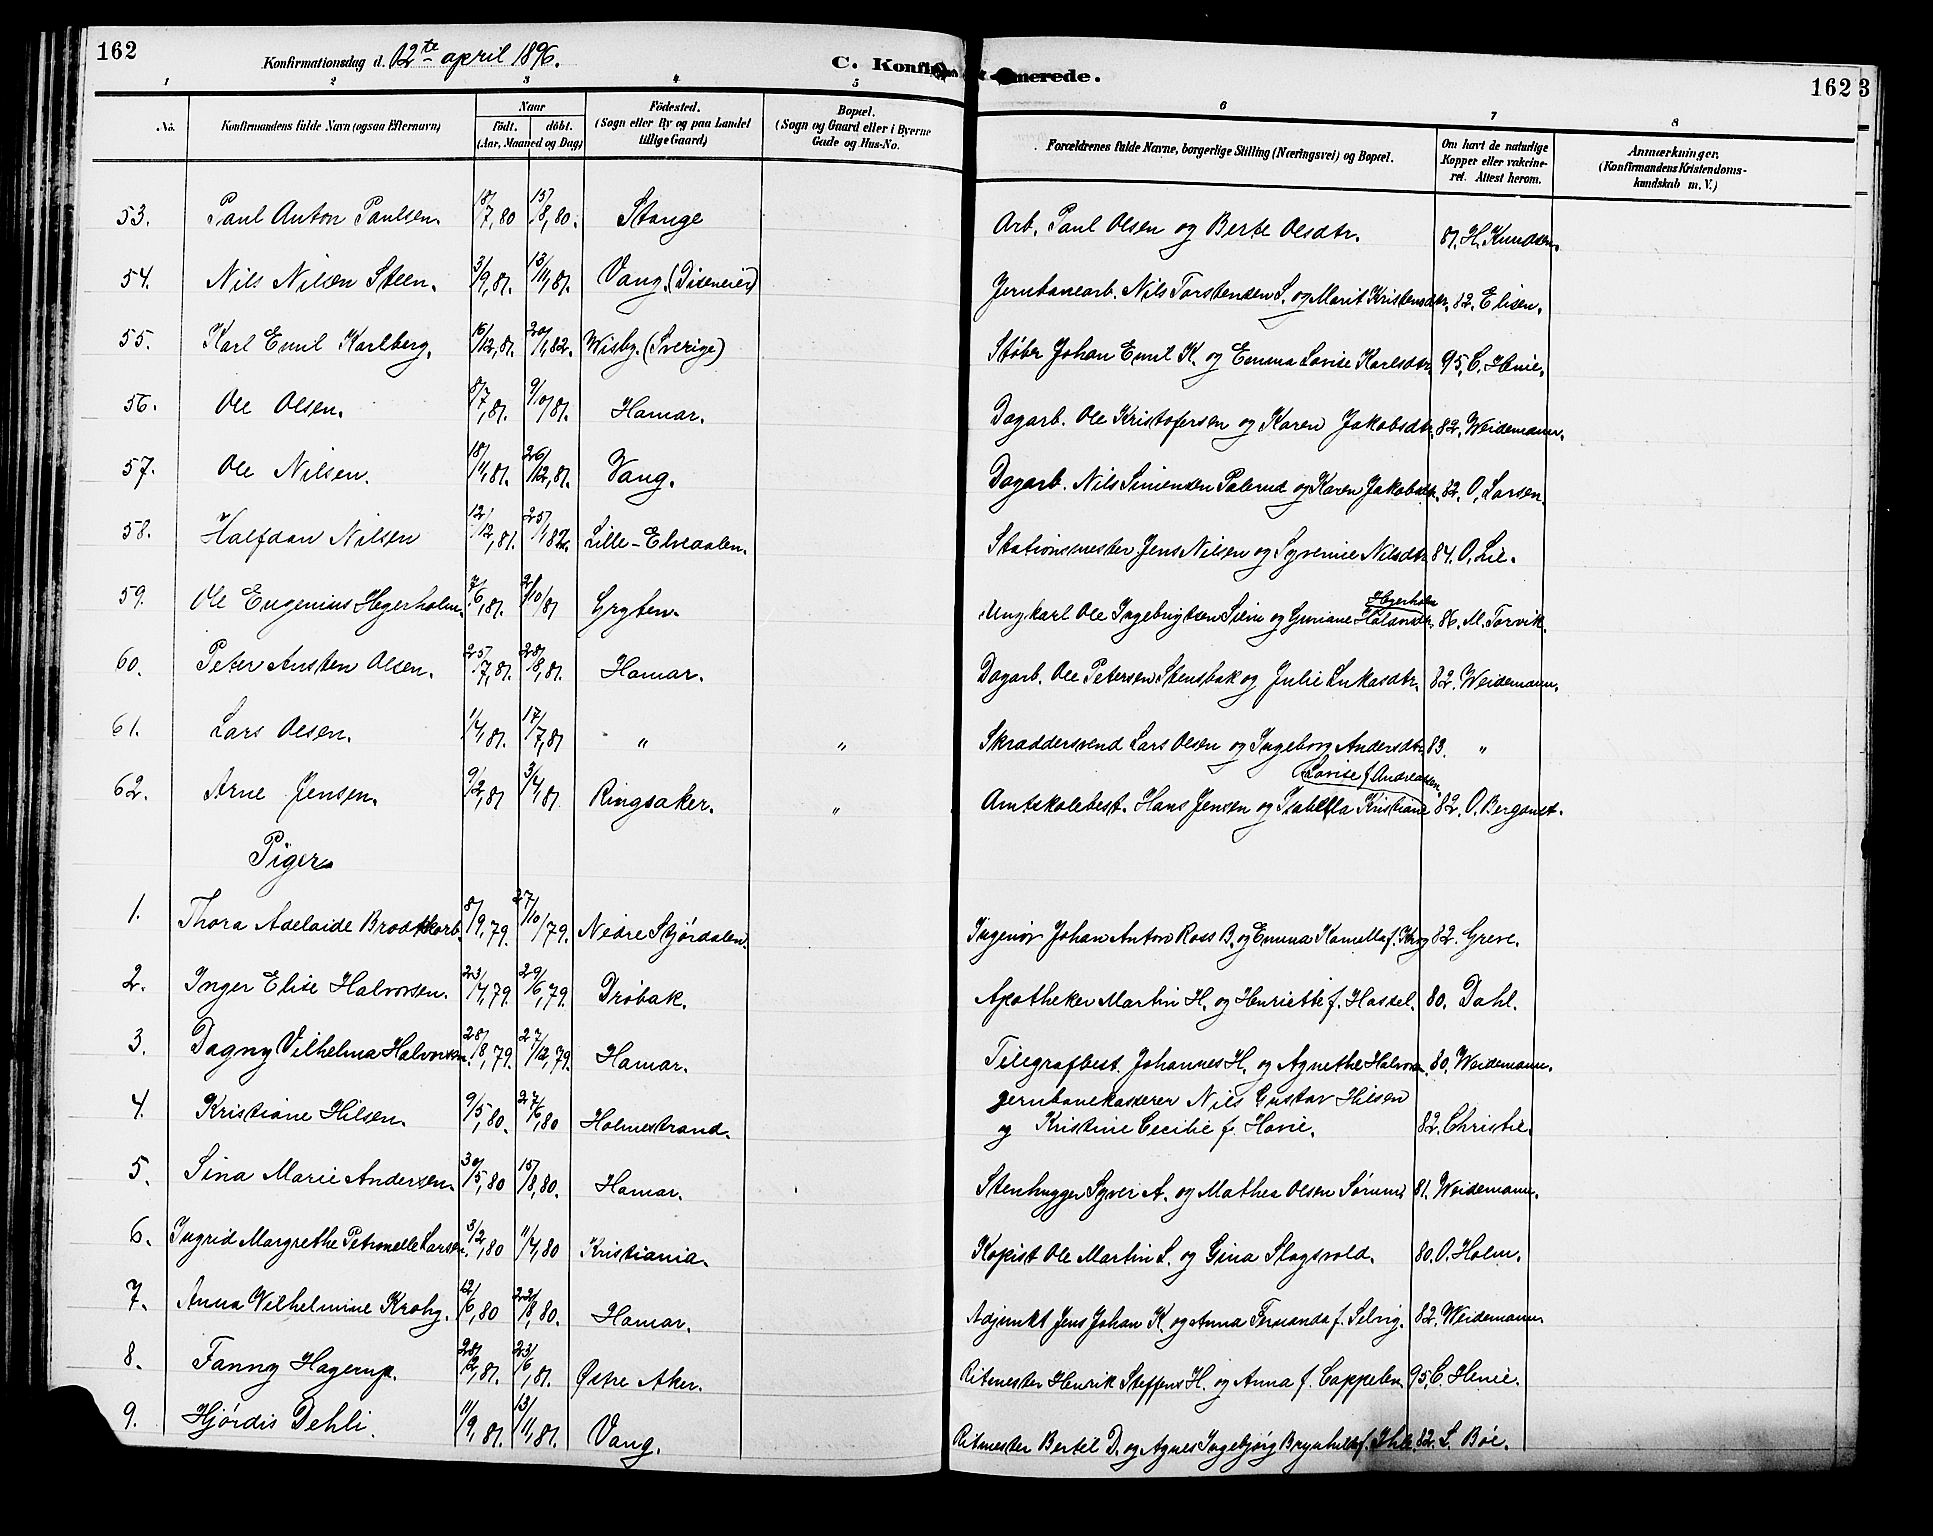 162
Konfirmationsdag d. 12te april 1896.
C. Konfirmerede.
162
3
1 2 3 4 5 6 7 8
No.
Konfirmandens fulde Navn (ogsaa Efternavn)
Naar
födt. döbt.
(Aar, Maaned og Dag)
Födested.
(Sogn eller By og paa Landet
tillige Gaard)
Bopæl.
(Sogn og Gaard eller i Byerne
Gade og Hus-No.
Forældrenes fulde Navne, borgerlige Stilling (Næringsvei) og Bopæl.
Om havt de naturlige
Kopper eller vakcine-
ret. Attest herom.
Anmærkninger.
(Konfirmandens Kristendoms-
kundskab m. V.)
53. Paul Anton Paulsen. 18/7,80 15/8,80. Stange Arb. Paul Olsen og Berte Olsdtr. 81. H. Knudsen.
54. Nils Nilsen Steen. 3/9,81. 13/11,81. Vang. (Diseneier) Jernbanearb. Nils Torstensen S. og Marit Kristensdtr. 82. Elisen.
55. Karl Emil Karlberg. 16/12,81. 20/1,82. Wisby. (Sverige) Støber Johan Emil K. og Emma Lovise Karlsdtr. 95. C. Henie.
56. Ole Olsen. 8/7,81. 9/10/81. Hamar. Dagarb. Ole Kristofersen og Karen Jakobsdtr. 82. Weidemann.
57. Ole Nilsen. 18/4,81. 26/12,81. Vang. Dagarb. Nils Simensen Palerud og Karen Jakobsdtr. 82. O. Larsen.
58. Halfdan Nilsen 12/12,81. 25/1,82. Lille-Elvedalen. Stationsmester Jens Nilsen og Syverine Nilsdtr. 84. O. Lie.
59. Ole Eugenius Hegerholm. 7/6,81. 2/10/81 Gryten. Ungkarl Ole Ingebrigtsen Sletn og Guriane Hegerholm 86. M. Torvik.
60. Peter Austen Olsen. 25/7,81. 28/8,81. Hamar. Dagarb. Ole Petersen Stensbak og Julie Lukasdtr. 82. Weidemann.
61. Lars Olsen. 1/4,81. 17/7,81 " " Skraddersvend Lars Olsen og Ingeborg Andersdtr. 83. "
Lovise f. Andreassen.
62. Arne Jensen. 9/2,81 3/4,81 Ringsaker. " Amtskolebest. Hans Jensen og Isabella Kristiane 82. O. Berganst.
Piger
1. Thora Adelaide Brodtkorb. 8/9,79. 27/10/79. Nedre Stjørdalen. Ingeniør Johan Anton Ross B. og Emma Kamilla f. Krog 82. Greve.
2. Inger Elise Halvorsen. 23/4,79. 29/6,79. Drøbak. Apotheker Martin H. og Henriette f. Hassel. 80. Dahl.
3. Dagny Vilhelma Halvorsen. 28/8,79. 27/12,79. Hamar. Telegrafbest. Johannes H. og Agnethe Halvorsen. 80. Weidemann.
4. Kristiane Hilsen. 9/5,80. 27/6,80 Holmestrand. Jernbanekasserer Nils Gustav Hilsen
og Kristine Cecilie f. Hovie. 82. Christie.
5. Sina Marie Andersen. 30/5,80 15/8,80. Hamar. Stenhugger Syver A. og Mathea Olsen Sørum. 81. Weidemann.
6. Ingrid Margrethe Petronelle Larsen. 3/2,80 11/4,80 Kristiania. Kopist Ole Martin L. og Gina Slagsvold. 80. O. Holm.
7. Anna Vilhelmine Krohg. 12/6,80 22/8,80. Hamar. Adjunkt Jens Johan K. og Anna Fernanda f. Selvig. 82. Weidemann
8. Fanny Hagerup. 28/2,81. 23/6,81. Østre Aker. Ritmester Henrik Steffens H. og Anna f. Cappelen 95. C. Henie.
9. Hjørdis Dehli. 11/9,81. 13/11,81. Vang. Ritmester Bertel D. og Agnes Ingebjørg Brynhilda f. Ihle. 82. L. Bøe.